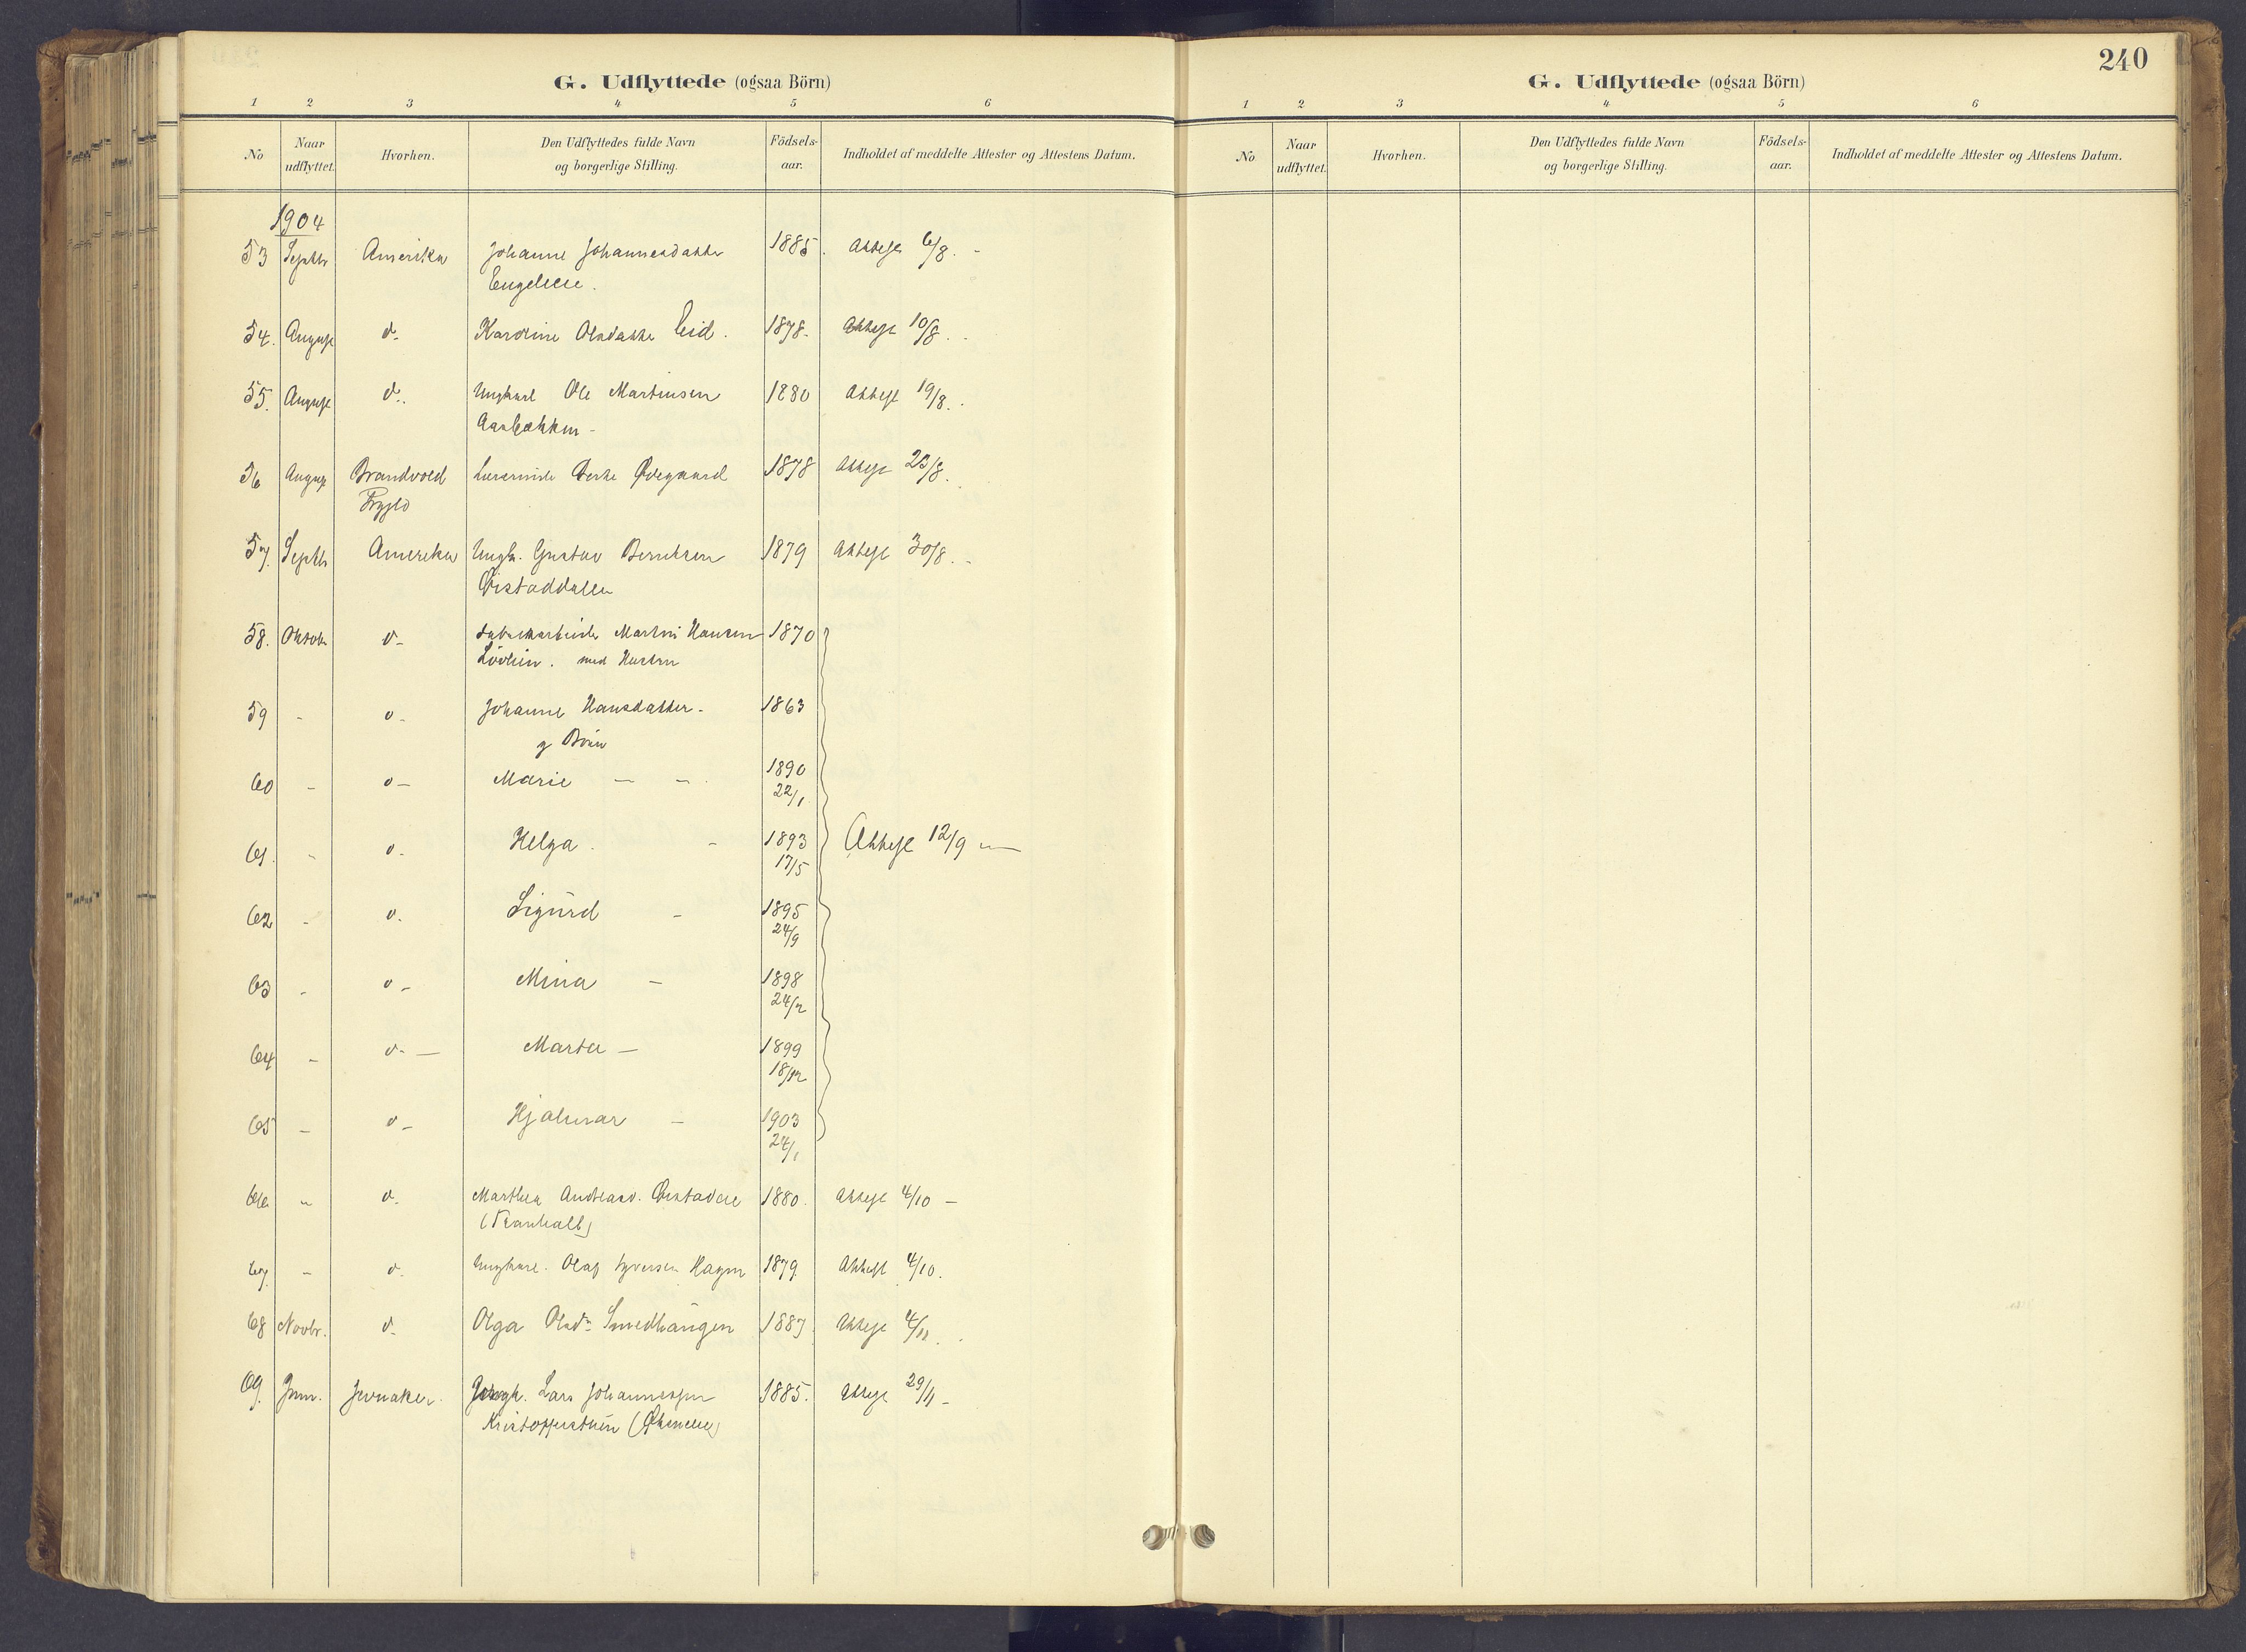 240
G. Udflyttede (ogsaa Börn)
1 2 3 4 5 6
No Naar udflyttet. Hvorhen. Den Udflyttedes fulde Navn og borgerlige Stilling. Födsels-aar. Indholdet af meddelte Attester og Attestens Datum.
1904
53 Septbr Amerika Johanne Johannesdatter 1885. Attest 6/8. -
54. August d- Karoline Olsdatter Eid. 1878- Attest 10/8. -
55. August d-. Ungkarl Ole Martinsen 1880 Attest 19/8. -
Aasbækken -
56 August Brandvold Lærerinde Berthe Ødegaard 1878 Attest 23/8.
57. Septbr Amerika Ungk. Gustav Berntsen 1879 Attest 30/8. -
Øistaddalen
58. Oktob d- Martin Hansen 1870
med Hustru
59 - d- Johanne Hansdatter - 1863
og Börn
60 - d- Marie - - 1890
22/1
61. - d- Helga. - 1893 Attest 12/9 -
17/5
62 - d. Sigurd - 1895
24/9
63 - d- Mina - 1898
24/2
64 - d- - Marta - 1899
18/12
65 - d- Hjalmar - 1903
24/1
66 - d- Marthea Andreasd. 1880. Attest 4/10 -
67. - d- Ungkarl. Olaf Syversen Hagen 1879 Attest 4/10.
68 Novbr. d- Olga Olsdr Smedhaugen 1887 Attest 4/11. -
69. Jevnaker. Lars Johannessen 1885. Attest 29/11 -
G. Udflyttede (ogsaa Börn)
1 2 3 4 5 6
No Naar udflyttet. Hvorhen. Den Udflyttedes fulde Navn og borgerlige Stilling. Födsels-aar. Indholdet af meddelte Attester og Attestens Datum.